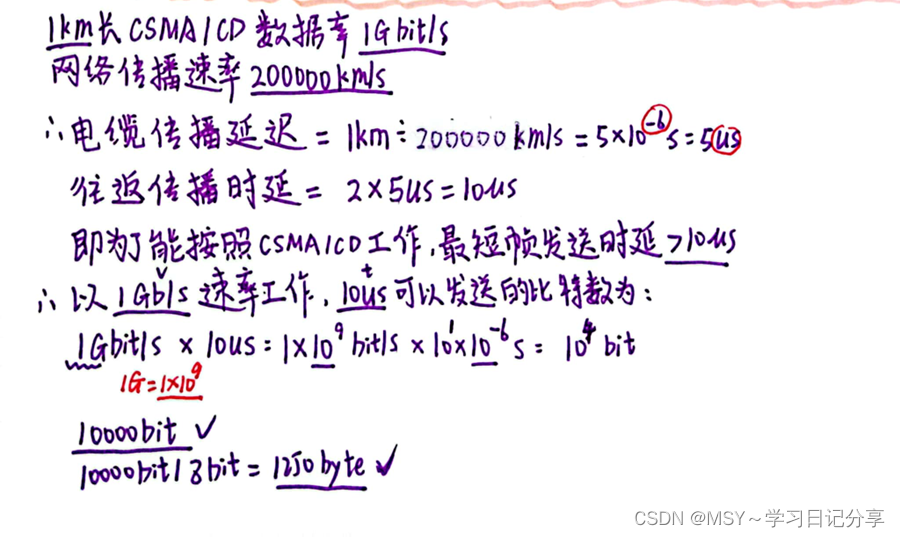 1km长CSMA/CD 数据率 1Gbit/s
网络传播速率 200000km/s
∴电缆传播延迟 = 1km÷200000km/s = 5×10⁻⁶s = 5us
往返传播时延 = 2×5us=10us
即为了能按照CSMA/CD工作,最短帧发送时延>10us
∴以1Gb/s速率工作,10us可以发送的比特数为:
1Gbit/s × 10us = 1×10⁹bit/s × 10¹×10⁻⁶s = 10⁴bit
1G=1×10⁹
10000bit ✓
10000bit/8bit = 1250byte ✓
CSDN @MSY~学习日记分享